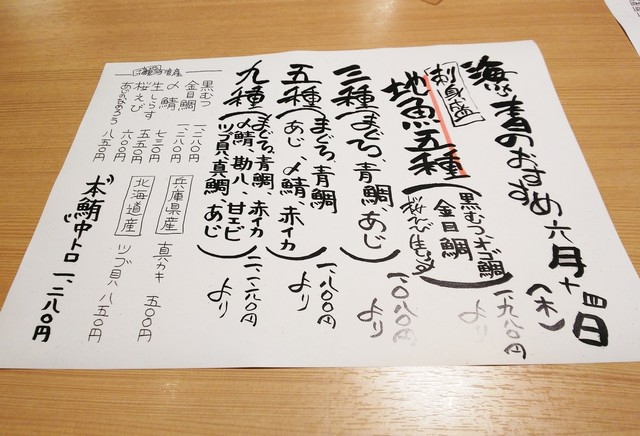 海青のおすすめ 六月十四日(木)
刺身盛
地魚五種(黒むつ、
金目鯛
桜えび、生しらす) 一、九八〇円より
三種(まぐろ、青鯛、あじ) 一、〇八〇円より
五種(まぐろ、青鯛
あじ、〆鯖、赤イカ) 一、八〇〇円より
九種(まぐろ、青鯛、赤イカ
〆鯖、勘八、甘エビ
ツブ貝、真鯛、あじ)
より
黒むつ 一、二八〇円
金目鯛 一、二八〇円
〆鯖 七三〇円
生しらす 五五〇円
桜えび 六〇〇円
あじのなめろう 八五〇円
兵庫県産 真カキ 五〇〇円
北海道産 ツブ貝 八五〇円
本鮪中トロ 一、二八〇円